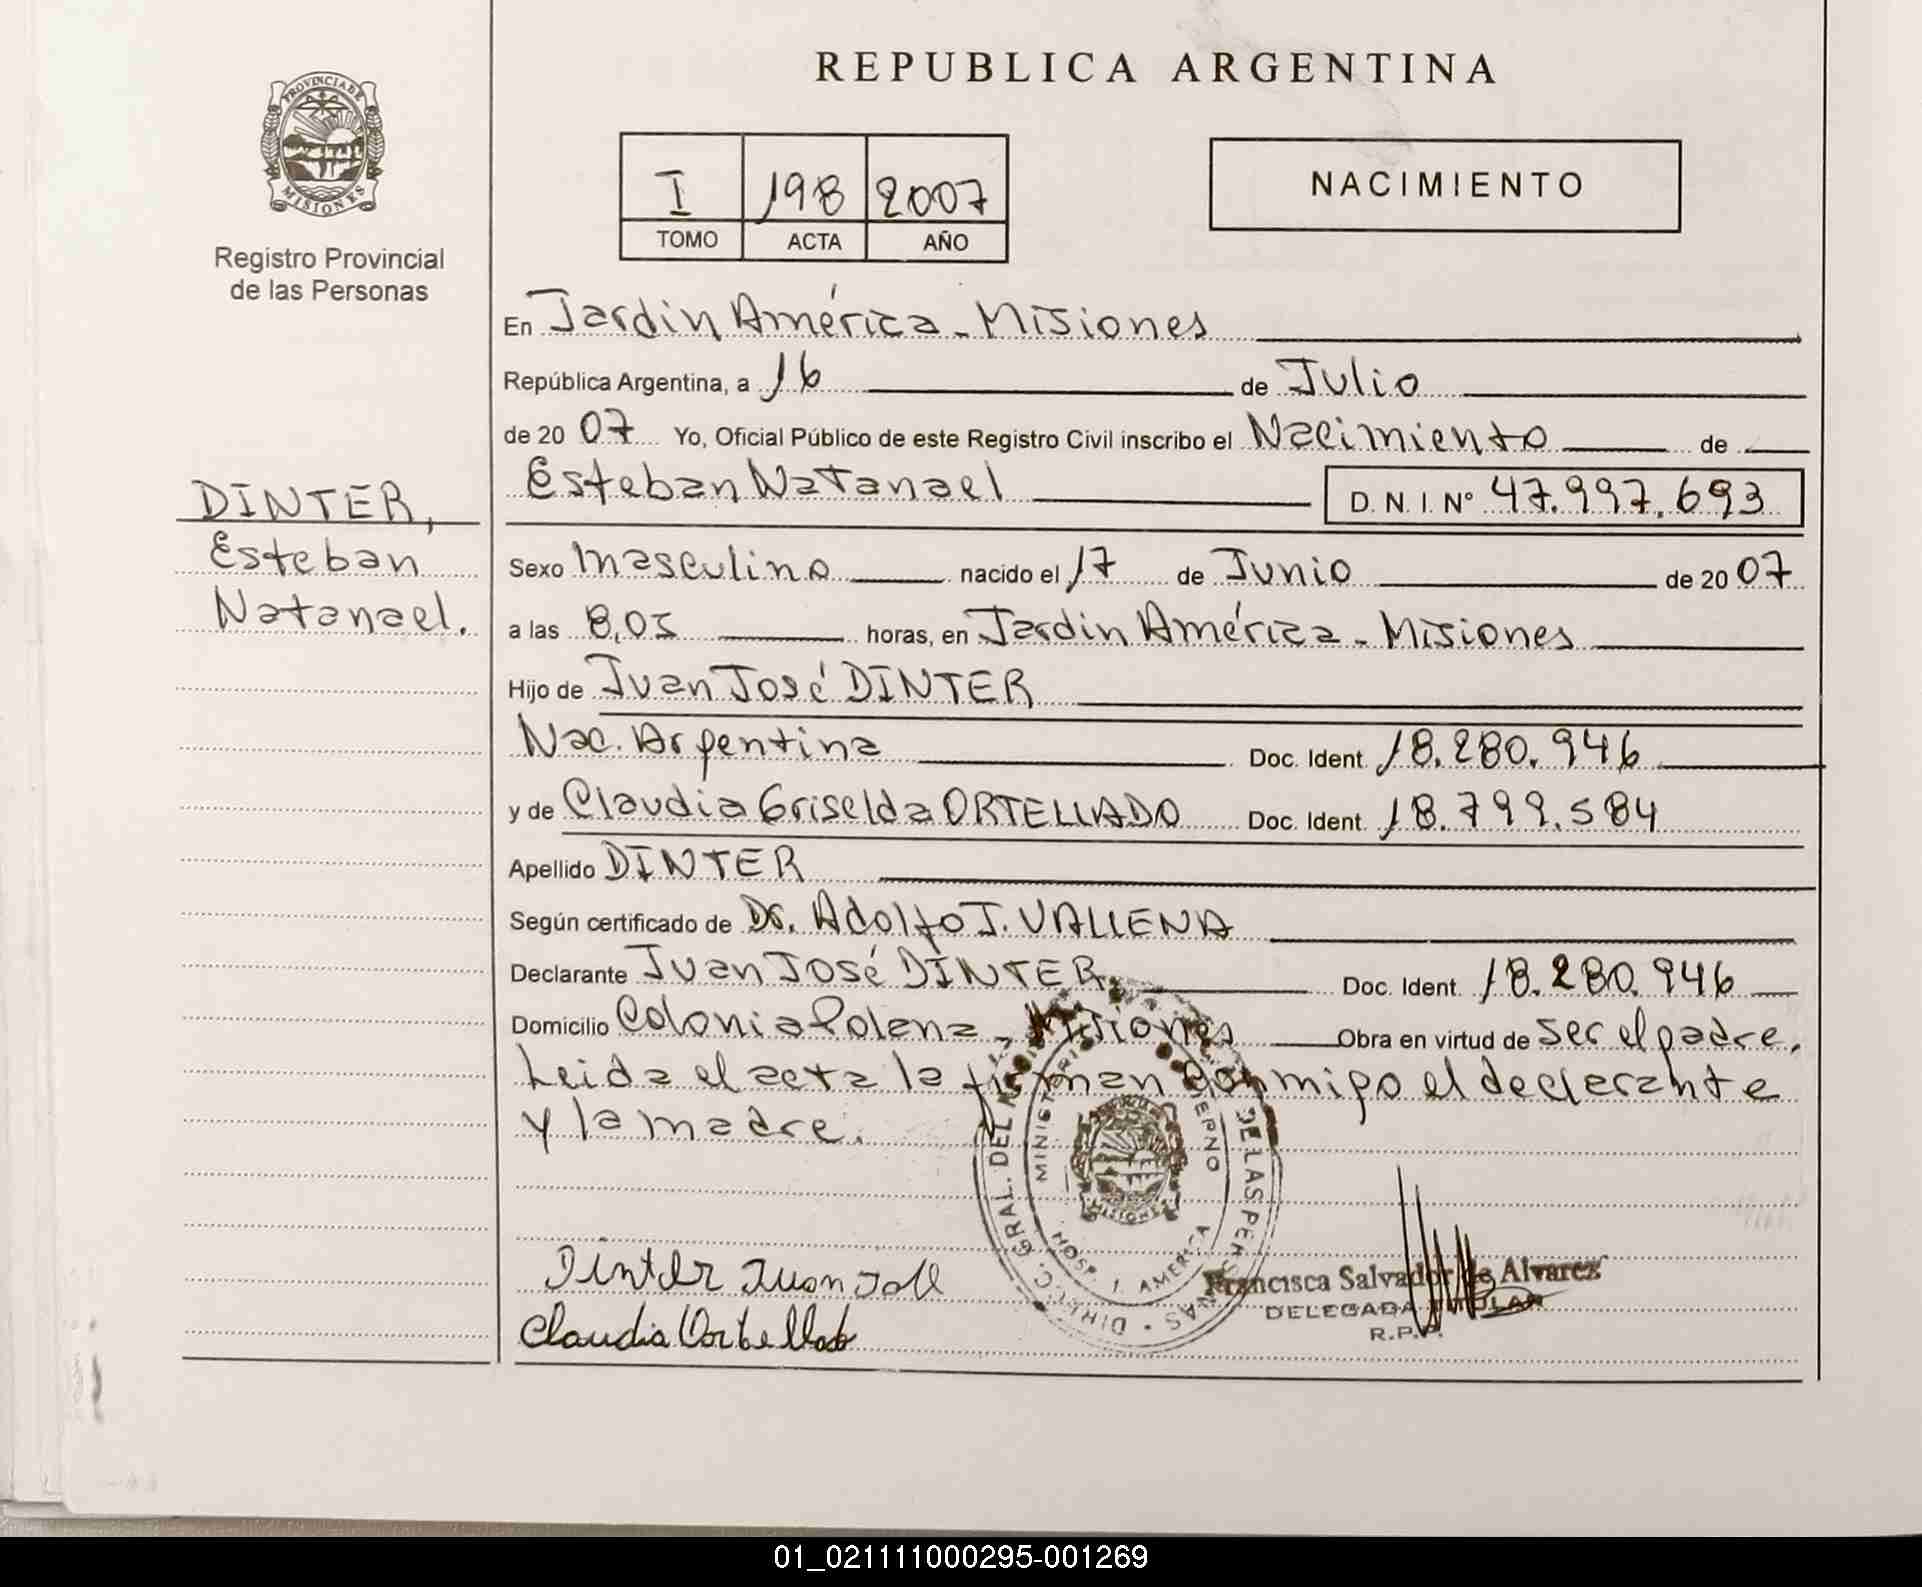 REPUBLICA ARGENTINA
PROVINCIA DE
MISIONES
Registro Provincial
de las Personas
I 198 2007
TOMO ACTA AÑO
NACIMIENTO
En Jardin América - Misiones
República Argentina, a 16 de Julio
de 20 07 Yo, Oficial Público de este Registro Civil inscribo el Nacimiento de
Esteban Natanael D. N. I. Nº 47.997.693
DINTER,
Esteban
Natanael.
Sexo Masculino nacido el 17 de Junio de 20 07
a las 8,05 horas, en Jardin América - Misiones
Hijo de Juan José DINTER
Nac. Argentina Doc. Ident. 18.280.946
y de Claudia Griselda ORTELLADO Doc. Ident. 18.799.584
Apellido DINTER
Según certificado de Dr. Adolfo J. VALLENA
Declarante Juan José DINTER Doc. Ident. 18.280.946
Domicilio Colonia Polana - Misiones Obra en virtud de ser el padre.
Leida el acta la firman conmigo el declarante
y la madre.
DIREC. GRAL. DEL DE LAS PERSONAS
MINISTERIO GOBIERNO
HOSP. J. AMERICA
MISIONES
Dinter Juan José
Claudia Ortellado
Francisca Salvador de Alvarez
DELEGADA TITULAR
R.P.P.
01_021111000295-001269